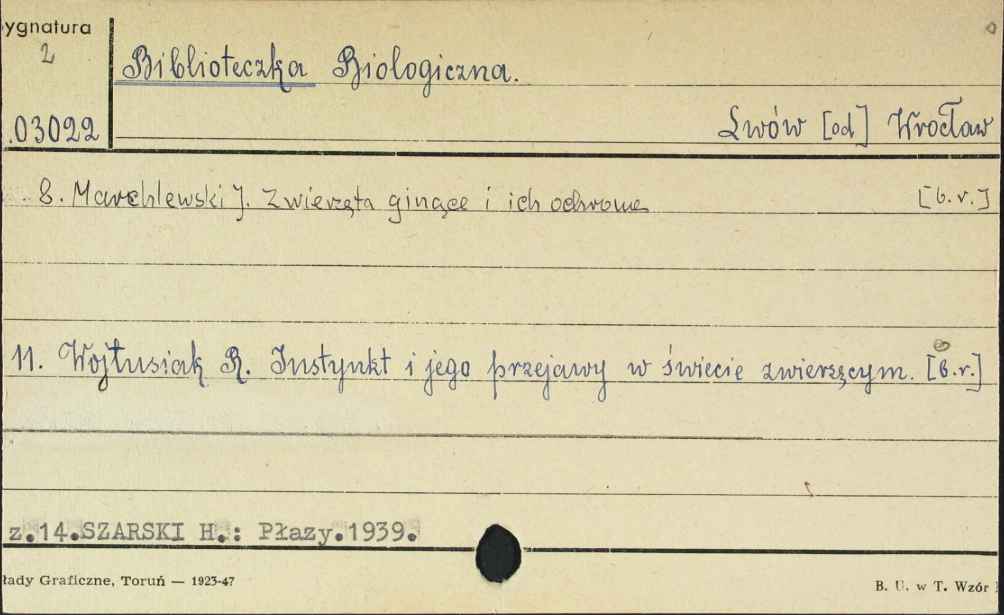 ygnatura
2
Biblioteczka Biologiczna.
.03022
Lwów [od] Wrocław
8. Marchlewski J. Zwierzęta ginące i ich ochrona [b.r.]
11. Wojtusiak R. Instynkt i jego przejawy w świecie zwierzęcym. [b.r.]
z.14.SZARSKI H.: Płazy.1939.
łady Graficzne, Toruń — 1923-47
B. U. w T. Wzór